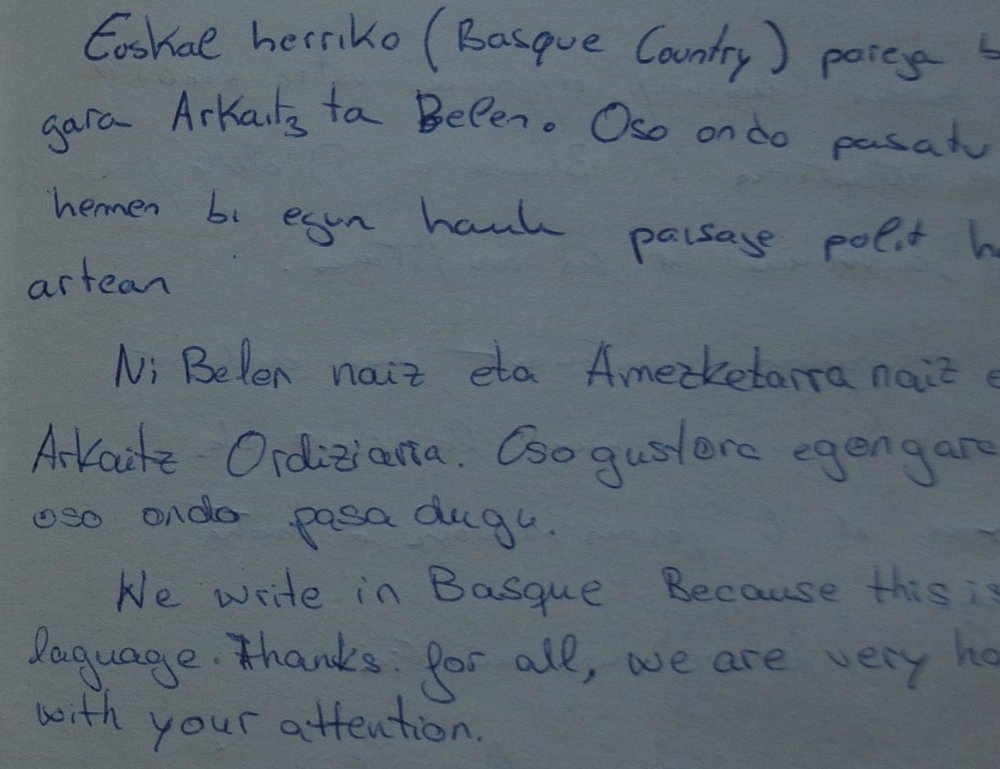 Euskal herriko (Basque Country) pareja
gara Arkaitz ta Belen. Oso ondo pasatu
hemen bi egun hauk paisaje polit
artean
Ni Belen naiz eta Amezketarra naiz
Arkaitz Ordiziarra. Oso gustora egon gara
oso ondo pasa dugu.
We write in Basque Because this is
laguage. Thanks. for all, we are very
with your attention.